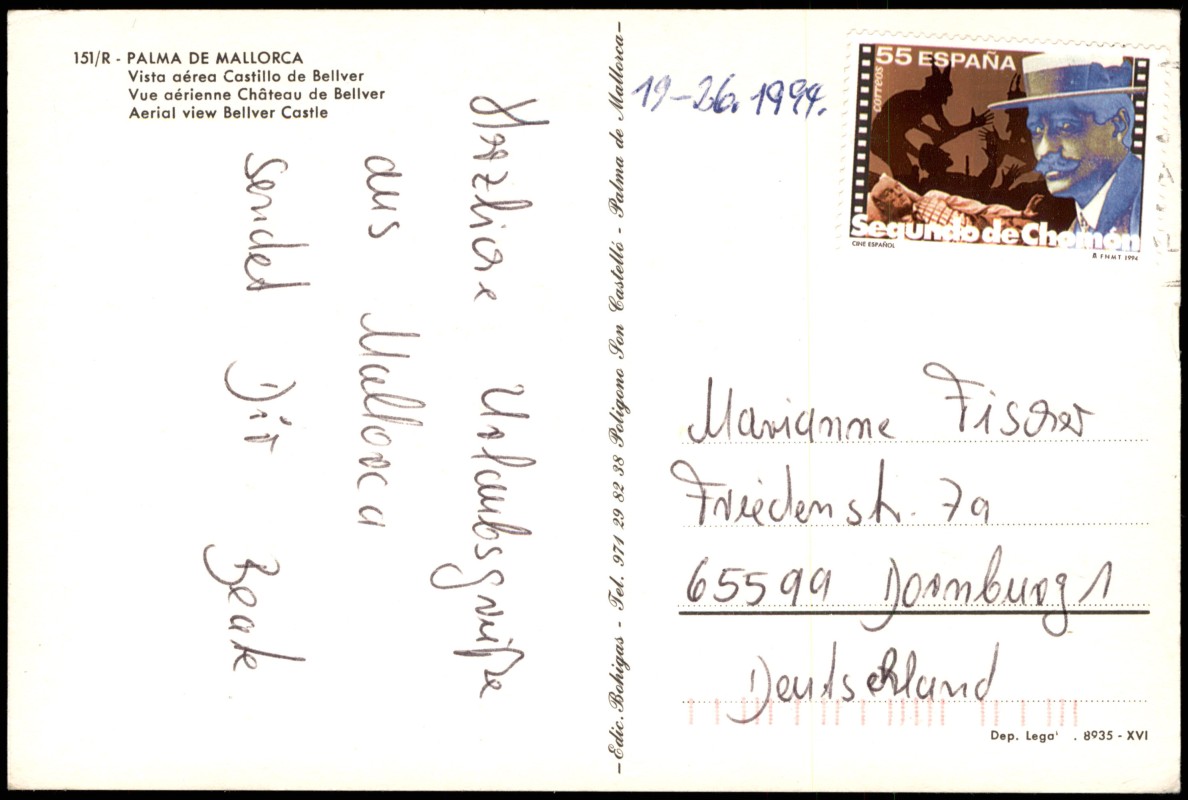 151/R - PALMA DE MALLORCA
Vista aérea Castillo de Bellver
Vue aérienne Château de Bellver
Aerial view Bellver Castle
Herzliche Urlaubsgrüße
aus Mallorca
sendet Dir Beate
-Edic. Bohigas - Tel. 971 29 82 38 Polígono Son Castelló - Palma de Mallorca-
19-26. 1994.
55 ESPAÑA
CORREOS
Segundo de Chomón
CINE ESPAÑOL
F N M T 1994
Marianne Fischer
Friedenstr. 7a
65599 Dornburg 1
Deutschland
Dep. Lega . 8935 - XVI